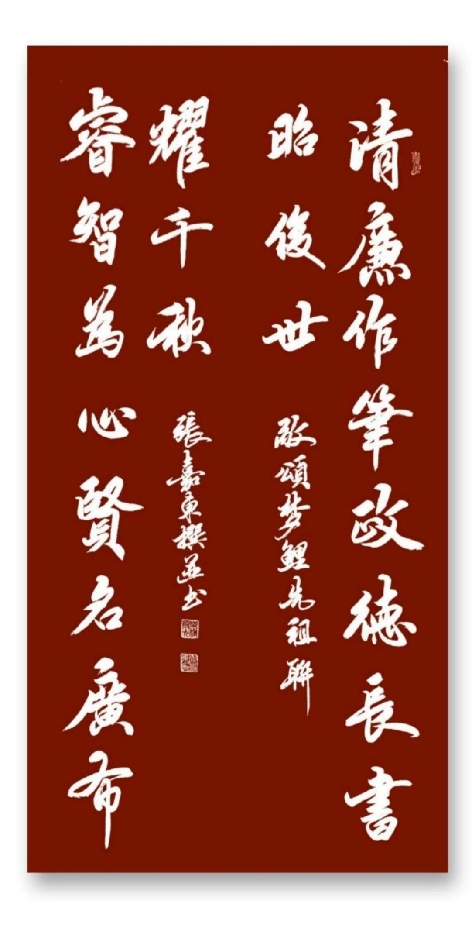 清廉作筆政德長書
昭後世
敬頌梦鯉先祖聯
睿智為心賢名廣布
耀千秋
張嘉東撰並书